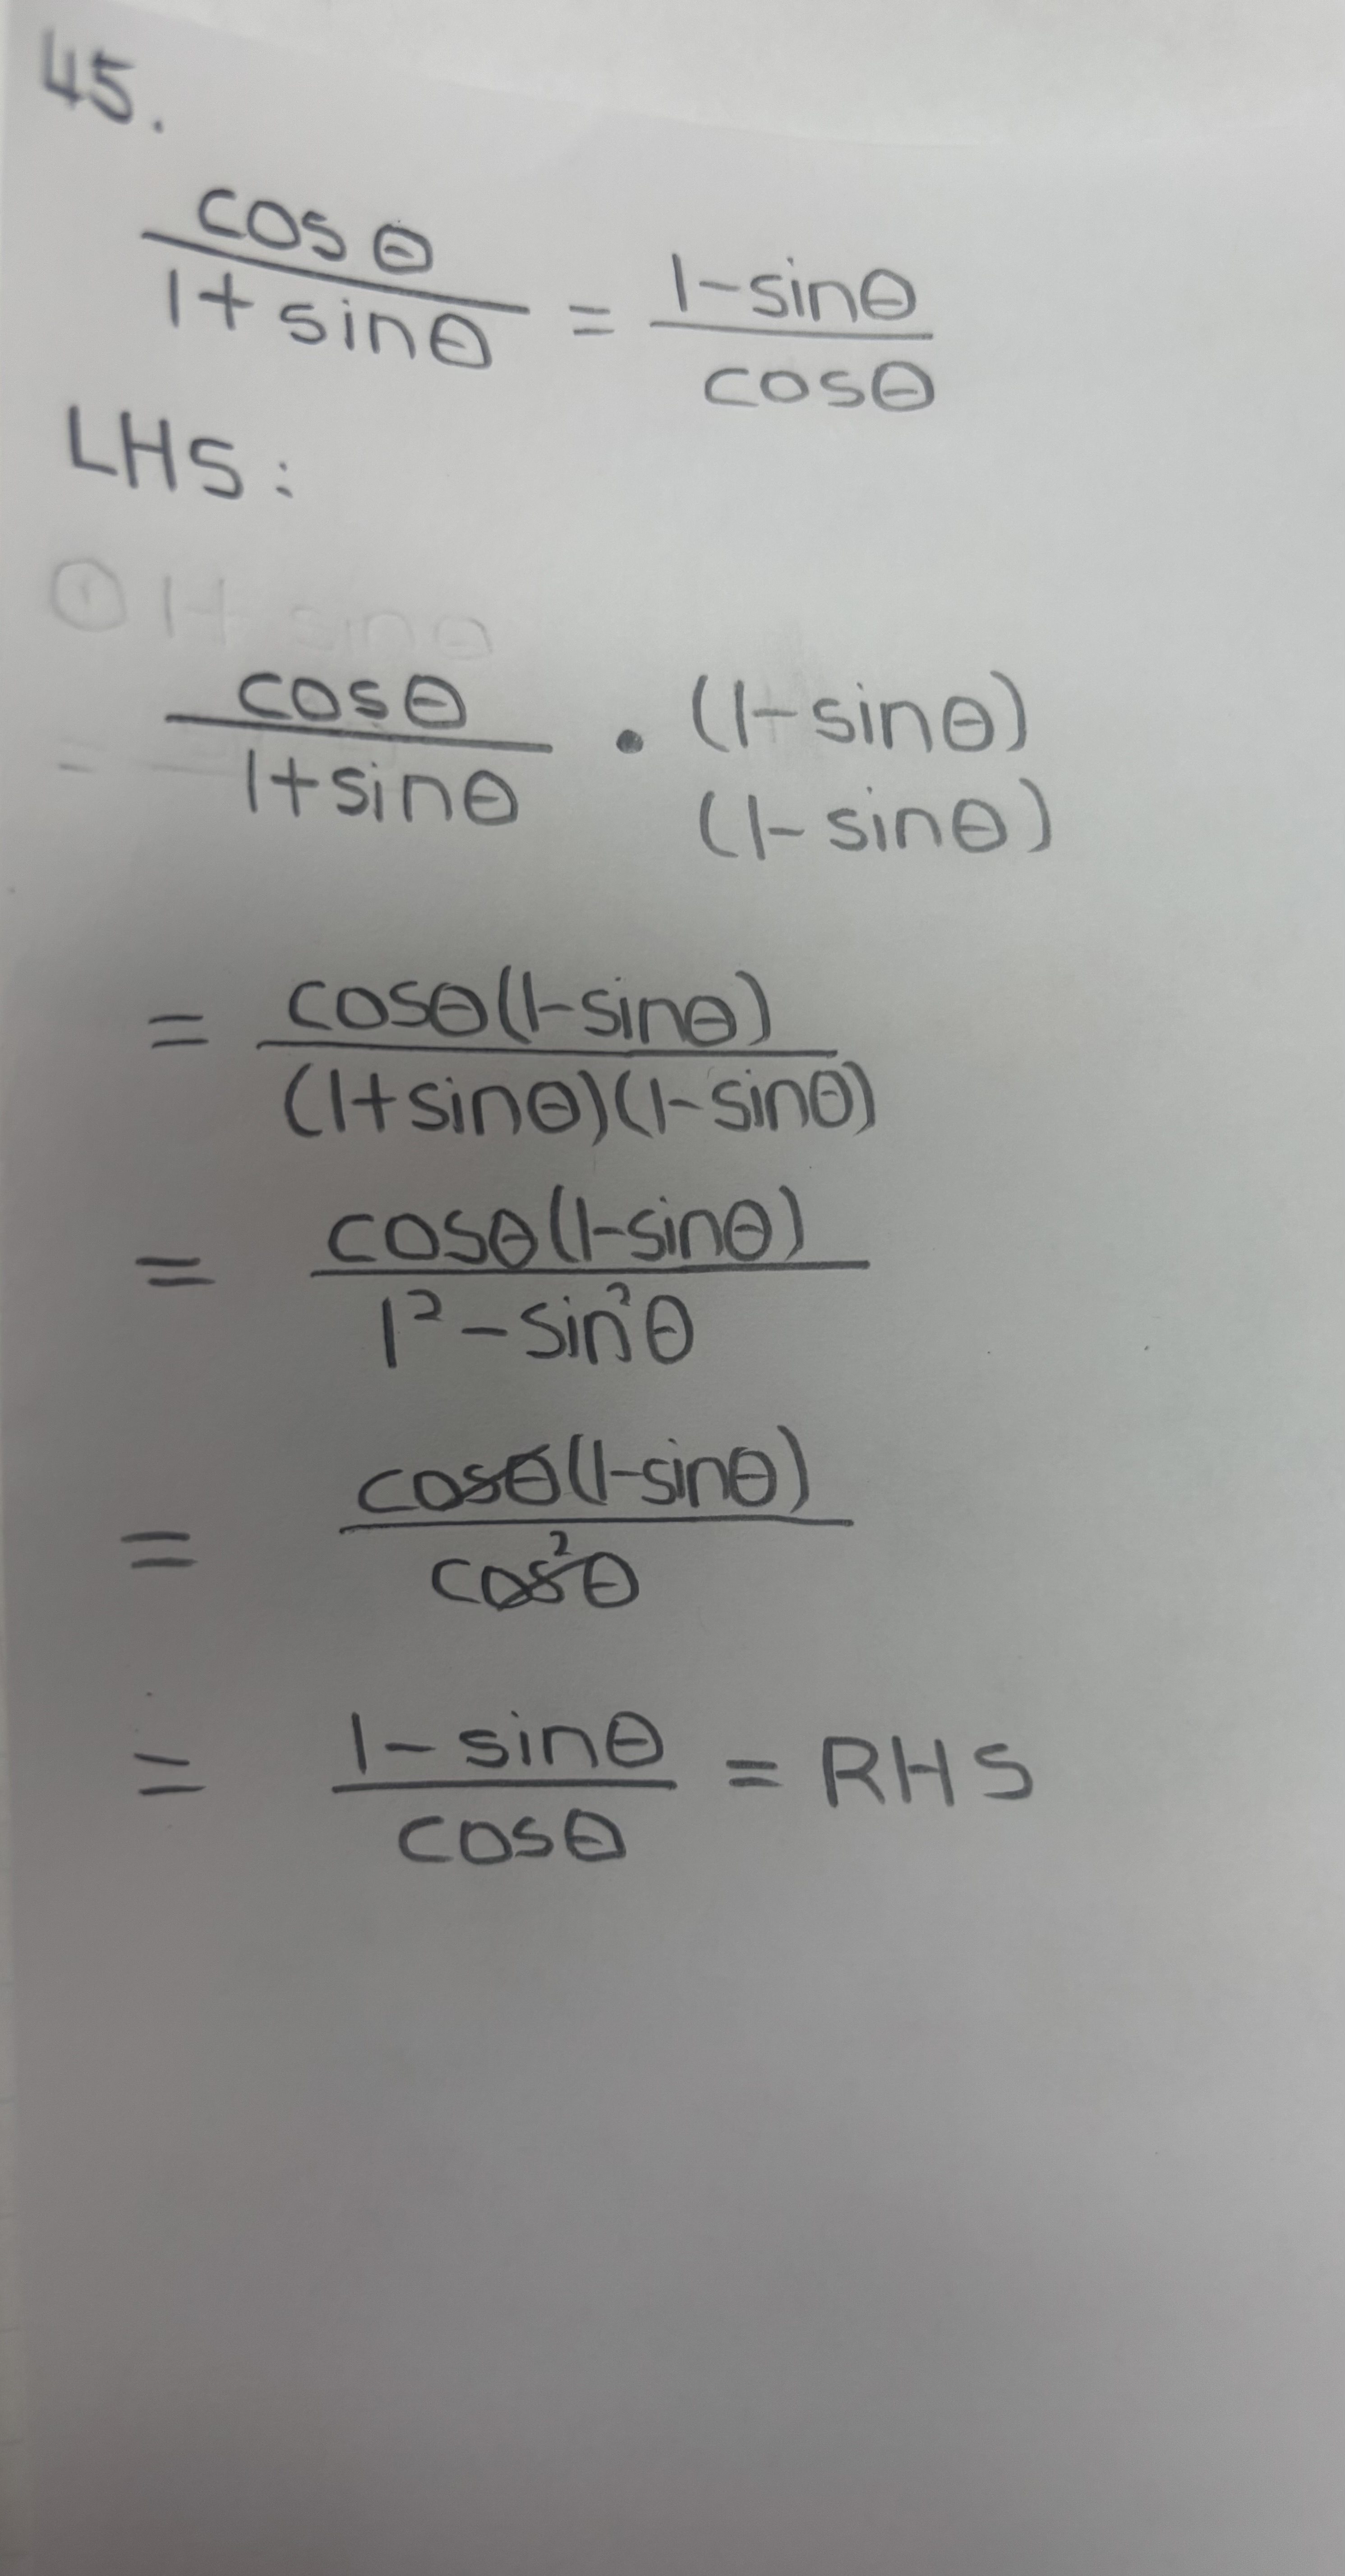 45.
cosθ
1+sinθ
=
1-sinθ
cosθ
LHS:
1+ sinθ
= cosθ/1+sinθ • (1-sinθ)
(1-sinθ)
= cosθ(1-sinθ)
(1+sinθ)(1-sinθ)
= cosθ(1-sinθ)
1²-sin²θ
= cosθ(1-sinθ)
cos²θ
= 1-sinθ/cosθ = RHS